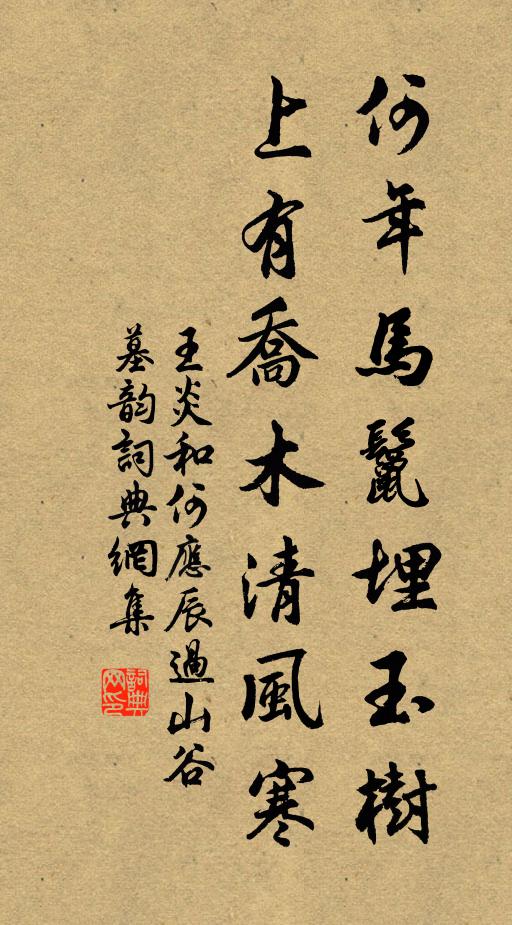 何年馬鬣埋玉樹
上有喬木清風寒
王炎和何應辰過山谷
墓韵詞典網集
詞典
网印